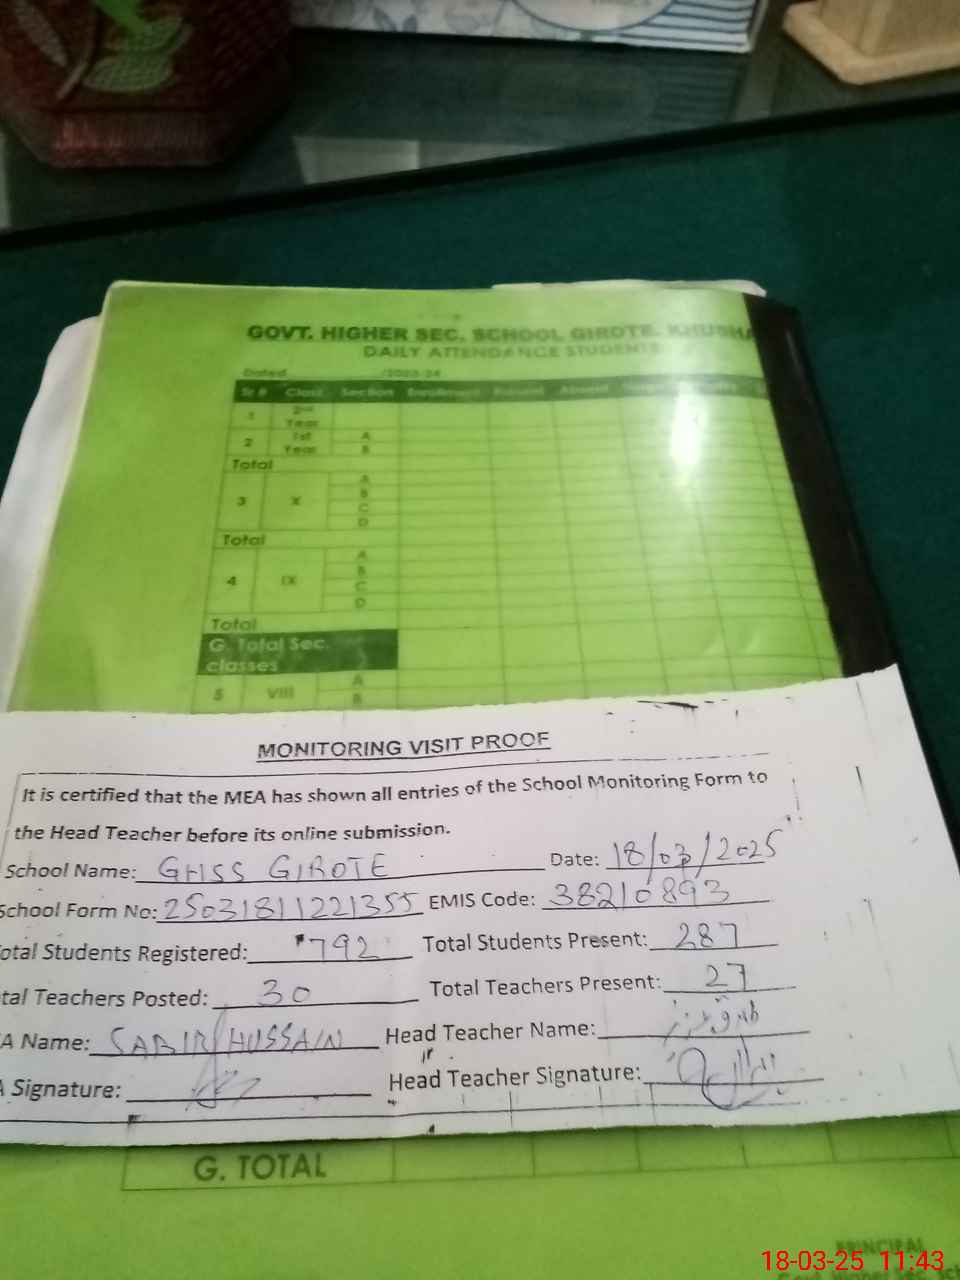 GOVT. HIGHER SEC. SCHOOL GIROTE, KHUSHA
DAILY ATTENDANCE STUDENTS
Dated /2023-24
Sr # Class Section Enrollment Present Absent
1 2nd Year
2 1st Year A
B
Total
3 X A
B
C
D
Total
4 IX A
B
C
D
Total
G. Total Sec.
classes
5 VIII A
B
MONITORING VISIT PROOF
It is certified that the MEA has shown all entries of the School Monitoring Form to
the Head Teacher before its online submission.
School Name: GHSS GIROTE Date: 18/03/2025
School Form No: 25031811221355 EMIS Code: 38210893
otal Students Registered: 792 Total Students Present: 287
tal Teachers Posted: 30 Total Teachers Present: 27
A Name: SABIR HUSSAIN Head Teacher Name:
A Signature: Head Teacher Signature:
G. TOTAL
PRINCIPAL
18-03-25 11:43